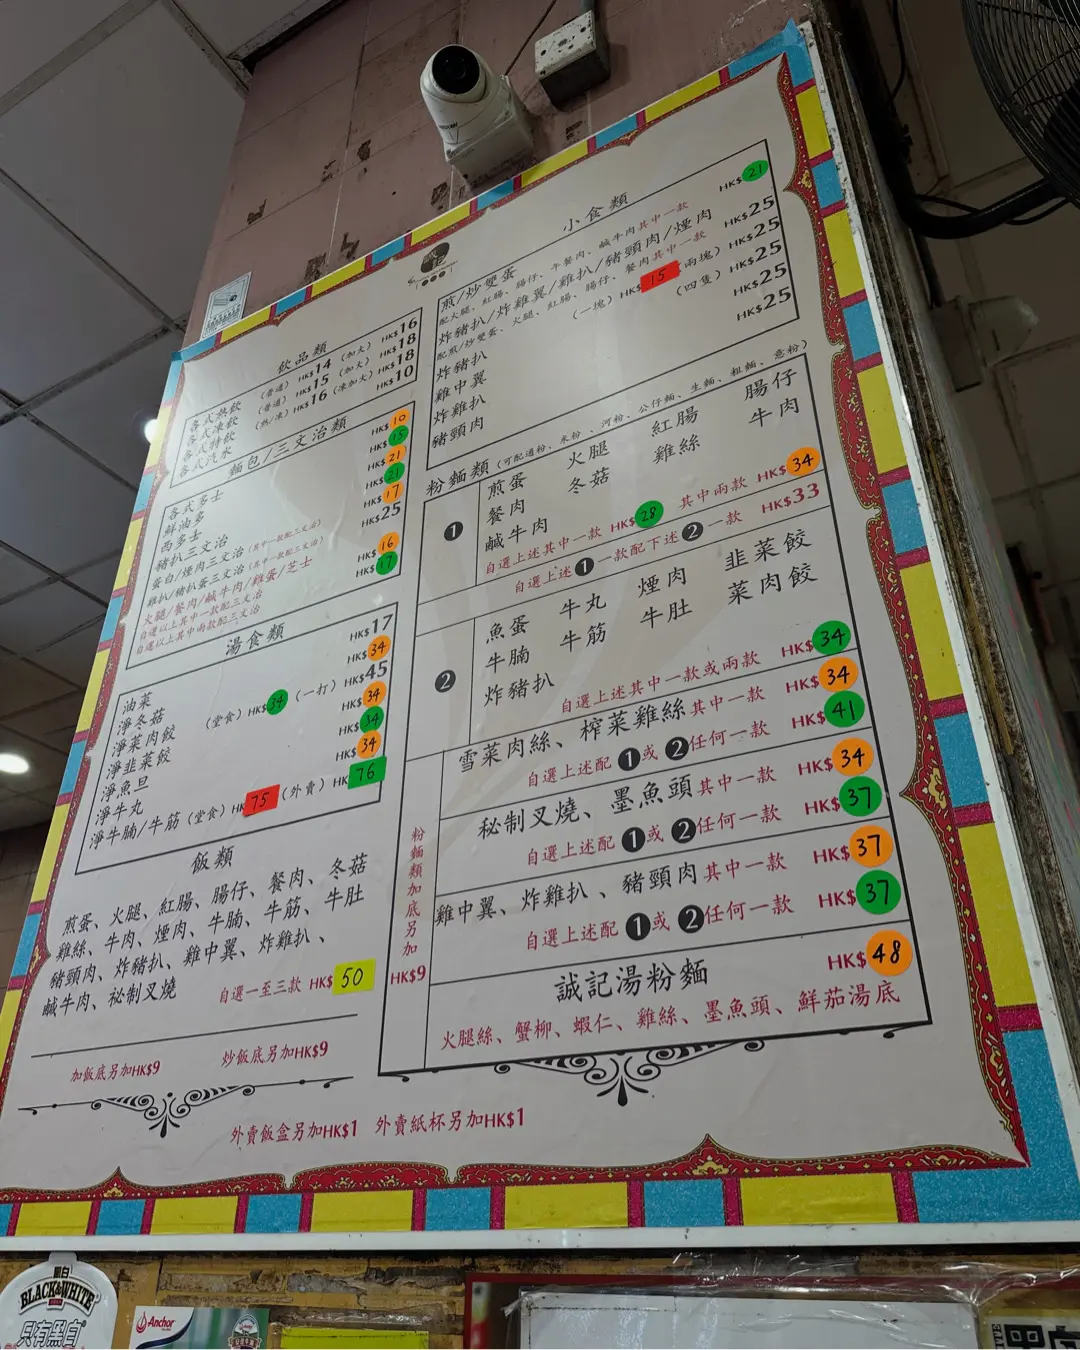 飲品類
各式熱飲 (普通) HK$14 (加大) HK$16
各式凍飲 (普通) HK$15 (加大) HK$18
各式特飲 (熱/凍) HK$16 (凍加大) HK$18
各式汽水 HK$10
麵包/三文治類
各式多士 HK$10
鮮油多 HK$15
西多士 HK$21
豬扒三文治 HK$21
蛋白/煙肉三文治 (其中一款配三文治) HK$17
雞扒/豬扒蛋三文治 (其中一款配三文治) HK$25
火腿/餐肉/鹹牛肉/雞蛋/芝士
自選以上其中一款配三文治 HK$16
自選以上其中兩款配三文治 HK$17
湯食類
油菜 HK$17
淨冬菇 HK$34
淨菜肉餃 (堂食) HK$34 (一打) HK$45
淨韭菜餃 HK$34
淨魚旦 HK$34
淨牛丸 HK$34
淨牛腩/牛筋 (堂食) HK 75 (外賣) HK 76
飯類
煎蛋、火腿、紅腸、腸仔、餐肉、冬菇
雞絲、牛肉、煙肉、牛腩、牛筋、牛肚
豬頸肉、炸豬扒、雞中翼、炸雞扒、
鹹牛肉、祕制叉燒
自選一至三款 HK$50
加飯底另加HK$9
炒飯底另加HK$9
小食類
煎/炒雙蛋 HK$21
配火腿、紅腸、腸仔、午餐肉、鹹牛肉其中一款
炸豬扒/炸雞翼/雞扒/豬頸肉/煙肉 HK$25
配煎/炒雙蛋、火腿、紅腸、腸仔、餐肉其中一款 HK$25
炸豬扒 (一塊) HK$15 (兩塊) HK$25
雞中翼 (四隻) HK$25
炸雞扒
豬頸肉 HK$25
粉麵類 (可配通粉、米粉、河粉、公仔麵、生麵、粗麵、意粉)
1
煎蛋 火腿 紅腸 腸仔
餐肉 冬菇 雞絲 牛肉
鹹牛肉
自選上述其中一款 HK$28 其中兩款 HK$34
自選上述1一款配下述2一款 HK$33
2
魚蛋 牛丸 煙肉 韭菜餃
牛腩 牛筋 牛肚 菜肉餃
炸豬扒
自選上述其中一款或兩款 HK$34
雪菜肉絲、榨菜雞絲其中一款 HK$34
自選上述配1或2任何一款 HK$41
秘制叉燒、墨魚頭其中一款 HK$34
自選上述配1或2任何一款 HK$37
雞中翼、炸雞扒、豬頸肉其中一款 HK$37
自選上述配1或2任何一款 HK$37
誠記湯粉麵 HK$48
火腿絲、蟹柳、蝦仁、雞絲、墨魚頭、鮮茄湯底
粉麵類加底另加
HK$9
外賣飯盒另加HK$1 外賣紙杯另加HK$1
黑白
BLACK&WHITE
只有黑白
Anchor